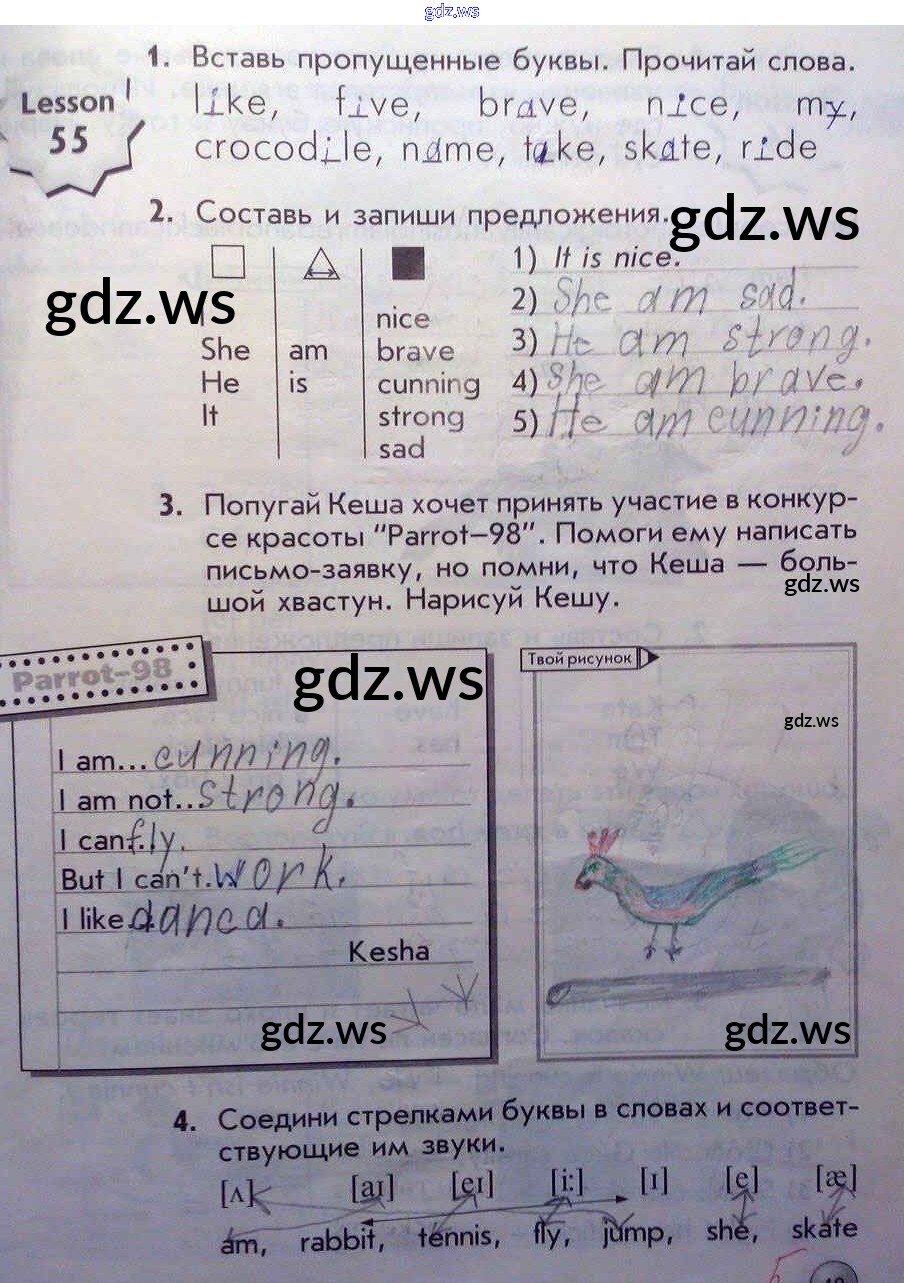 gdz.ws
1. Вставь пропущенные буквы. Прочитай слова.
Lesson
55
like, five, brave, nice, my,
crocodile, name, take, skate, ride
2. Составь и запиши предложения.
gdz.ws
gdz.ws
I
She am
He is
It
nice
brave
cunning
strong
sad
1) It is nice.
2) She am sad.
3) He am strong.
4) She am brave.
5) He am cunning.
3. Попугай Кеша хочет принять участие в конкур-
се красоты "Parrot–98". Помоги ему написать
письмо-заявку, но помни, что Кеша — боль-
шой хвастун. Нарисуй Кешу.
gdz.ws
Parrot–98
gdz.ws
I am... cunning.
I am not.. strong.
I can fly.
But I can't. work.
I like danca.
Kesha
gdz.ws
Твой рисунок
gdz.ws
gdz.ws
4. Соедини стрелками буквы в словах и соответ-
ствующие им звуки.
[ʌ] [aɪ] [eɪ] [i:] [ɪ] [e] [æ]
am, rabbit, tennis, fly, jump, she, skate